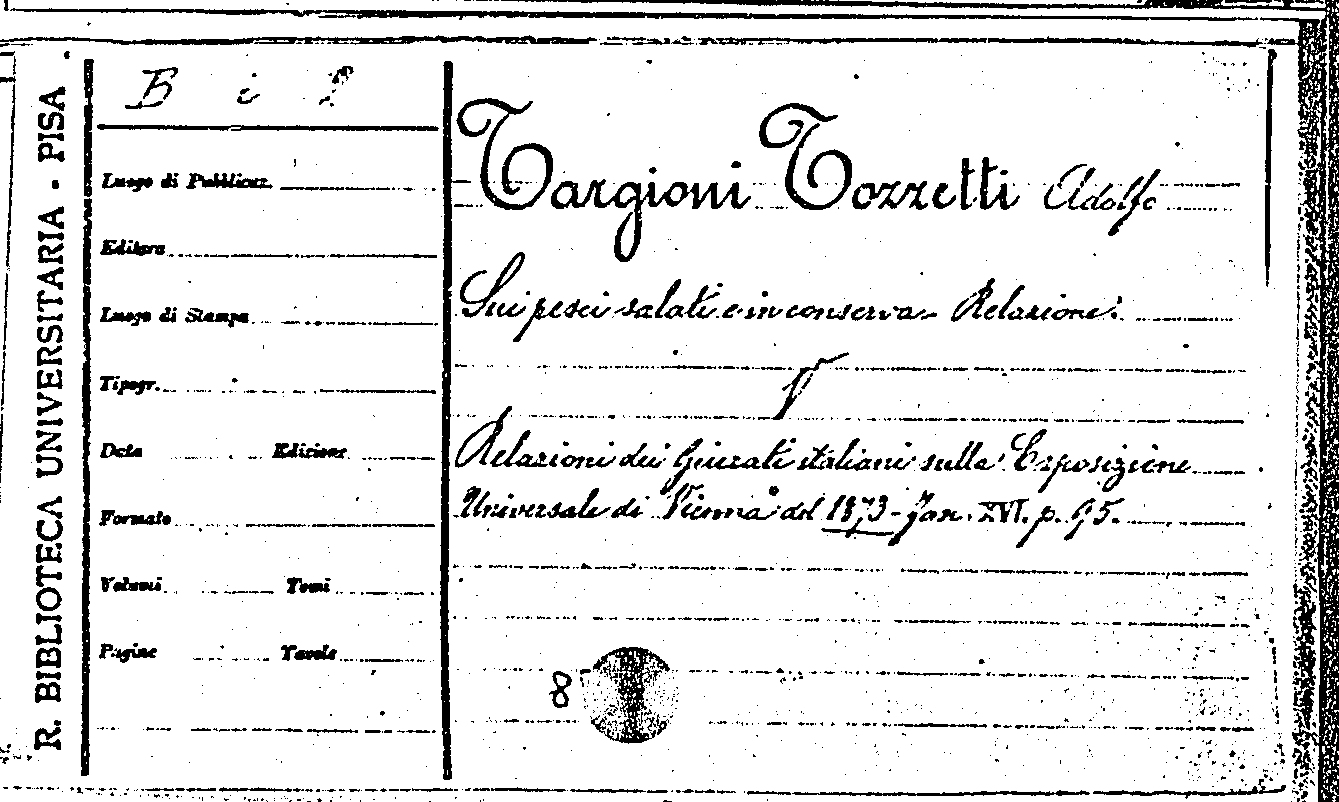 R. BIBLIOTECA UNIVERSITARIA - PISA
B i 8
Luogo di Pubblicaz.
Editore
Luogo di Stampa
Tipogr.
Data Edizione
Formato
Volumi Tomi
Pagine Tavole
Targioni Tozzetti Adolfo
Sui pesci salati e in conserva - Relazione.
V
Relazioni dei Giurati italiani sulla Esposizione
Universale di Vienna del 1873 - XVI. p. 95.
8